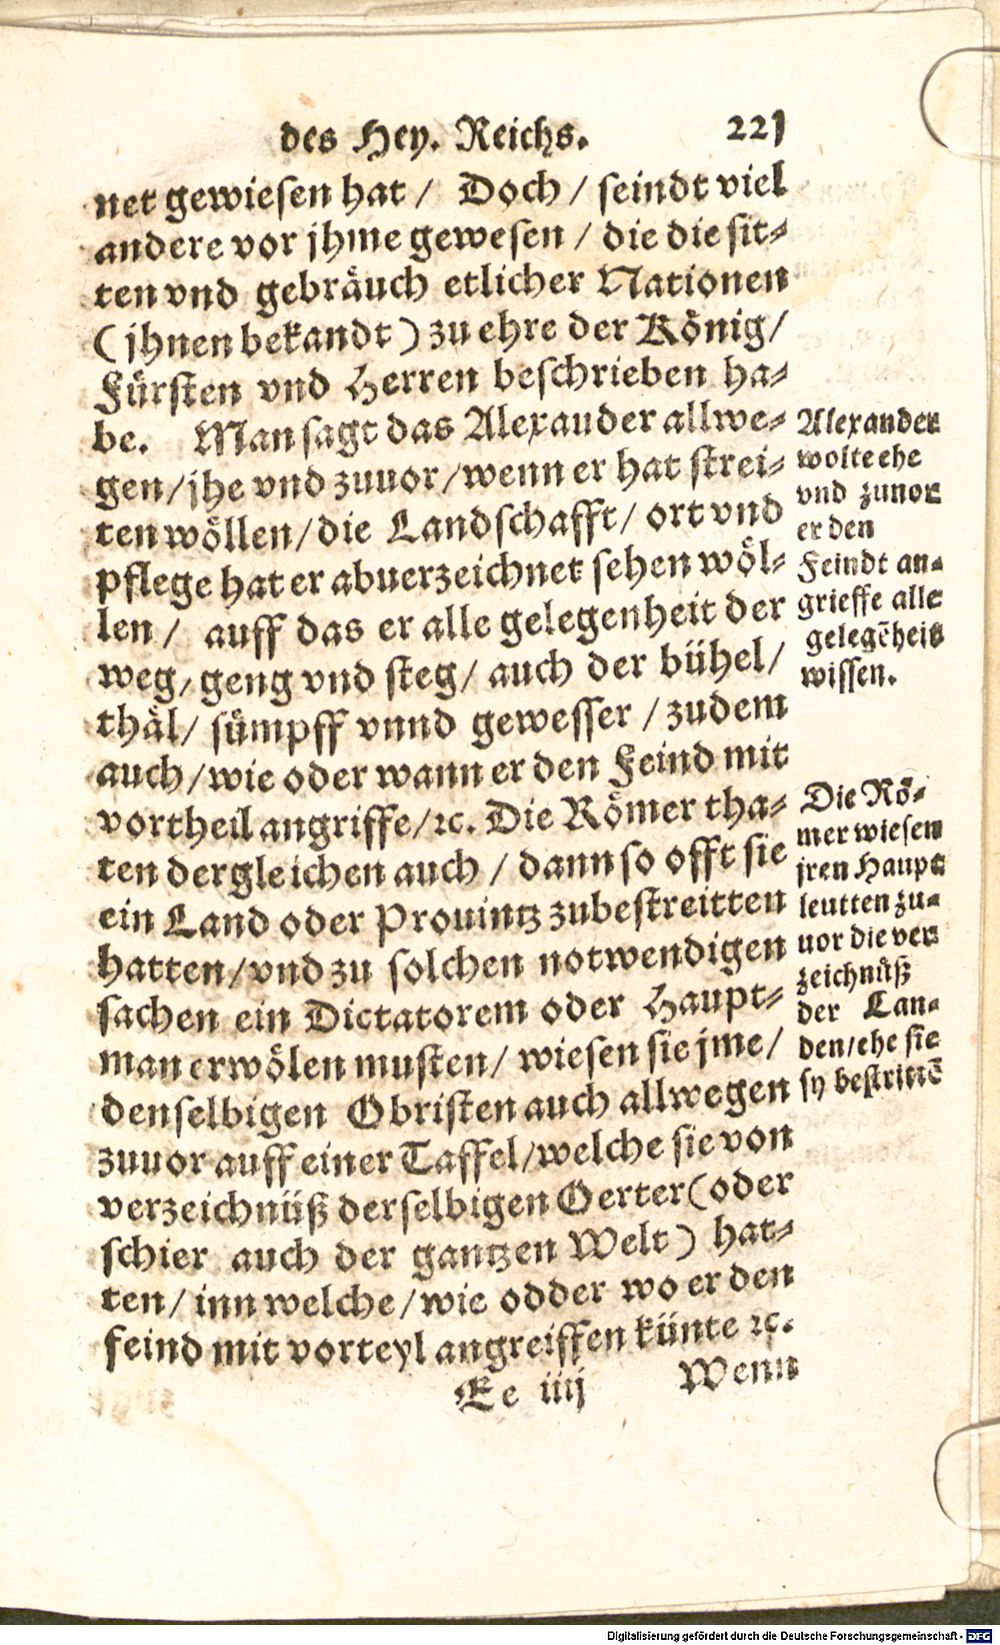 des Hey. Reichs. 221
net gewiesen hat / Doch / seindt viel
andere vor jhme gewesen / die die sit-
ten vnd gebräuch etlicher Nationen
(jhnen bekandt) zu ehre der König /
Fürsten vnd Herren beschrieben ha-
be. Man sagt das Alexauder allwe-
gen / jhe vnd zuuor / wenn er hat strei-
ten wöllen / die Landschafft / ort vnd
pflege hat er abuerzeichnet sehen wöl-
len / auff das er alle gelegenheit der
weg, geng vnd steg / auch der bühel /
thäl / sümpff vnnd gewesser / zudem
auch / wie oder wann er den Feind mit
vortheil angriffe / ꝛc. Die Römer tha-
ten dergleichen auch / dann so offt sie
ein Land oder Prouintz zubestreitten
hatten / vnd zu solchen notwendigen
sachen ein Dictatorem oder Haupt-
man erwölen musten / wiesen sie jme /
denselbigen Obristen auch allwegen
zuuor auff einer Taffel / welche sie von
verzeichnüß derselbigen Oerter (oder
schier auch der gantzen Welt) hat-
ten / inn welche / wie odder wo er den
feind mit vorteyl angreiffen künte ꝛc.
Ee iiij Wenn
Alexander
wolte ehe
vnd zunor
er den
Feindt an-
grieffe alle
gelegēheit
wissen.
Die Rö-
mer wiesen
jren Haupt
leutten zu-
uor die ver
zeichnüß
der Lan-
den / ehe sie
sy bestrittē
Digitalisierung gefördert durch die Deutsche Forschungsgemeinschaft - DFG